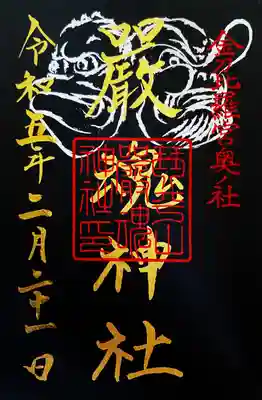 金刀比羅宮奥社
嚴魂神社
神社印
令和五年二月二十一日